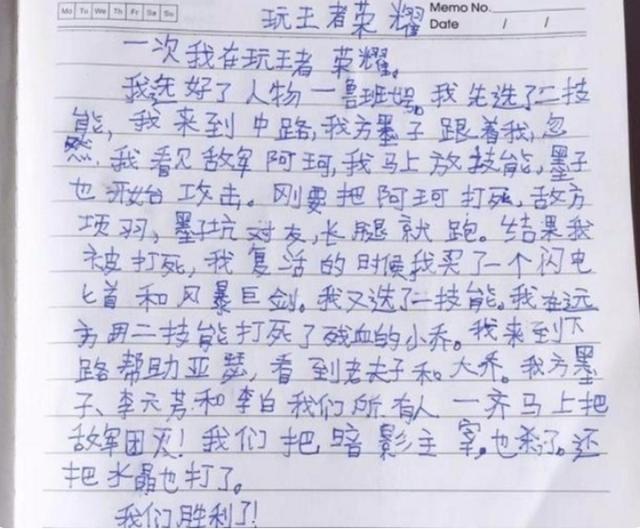 Mo Tu We Th Fr Sa Su
Memo No.
Date / /
玩王者荣耀
一次我在玩王者荣耀。
我选好了人物一鲁班娱。我先选了二技
能,我来到中路,我方墨子跟着我,忽
然,我看见敌军阿珂,我马上放技能,墨子
也开始攻击。刚要把阿珂打死,敌方
项羽,墨子坑对友,长腿就跑。结果我
被打死,我复活的时候我买了一个闪电
匕首和风暴巨剑。我又选了二技能。我在远
方用二技能打死了残血的小乔。我来到下
路帮助亚瑟,看到老夫子和大乔。我方墨
子、李元芳和李白我们所有人一齐马上把
敌军团灭!我们把暗影主宰,也杀了。还
把水晶也打了。
我们胜利了!